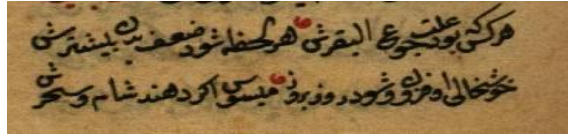 هر کسی بود علت جوع البقرش هر لحظه شود ضعف بدن بیشترش
خوشحالی او فزون شود روز بروز میسوس اگر دهند شام و سحرش